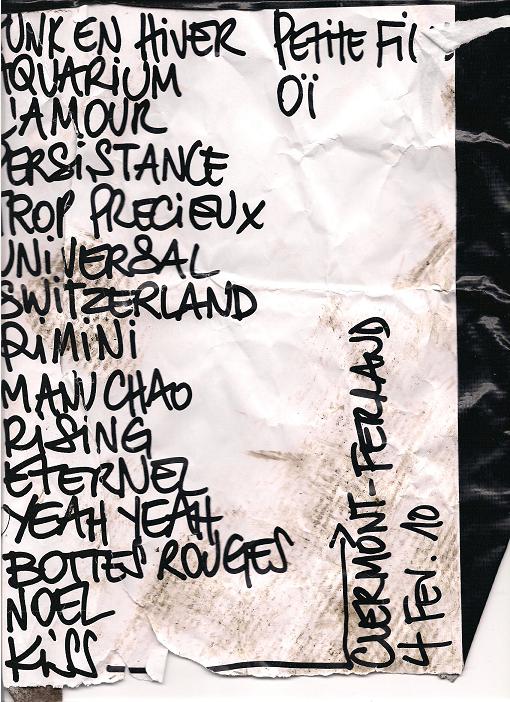 UNK EN HIVER
AQUARIUM
L'AMOUR
PERSISTANCE
TROP PRECIEUX
UNIVERSAL
SWITZERLAND
RIMINI
MANU CHAO
RISING
ETERNEL
YEAH YEAH
BOTTES ROUGES
NOEL
KISS
PETITE FIL
OÏ
CLERMONT-FERRAND
4 FEV. 10